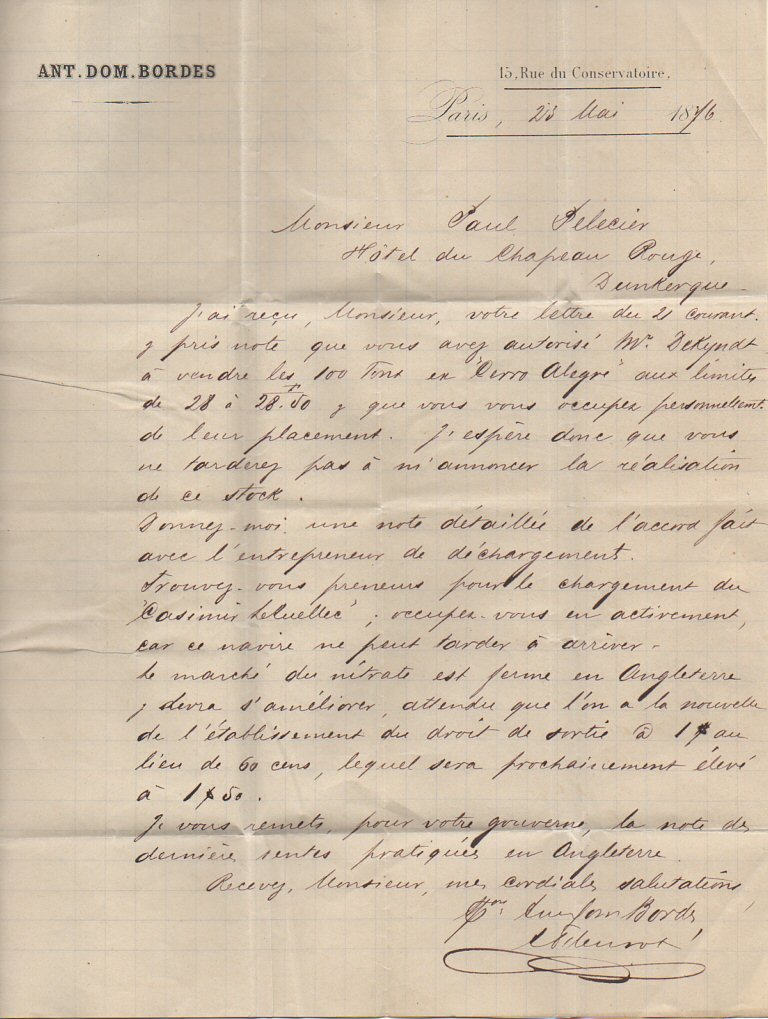 ANT. DOM. BORDES
15, Rue du Conservatoire.
Paris, 23 Mai 1876.
Monsieur Paul Pelecier
Hôtel du Chapeau Rouge,
Dunkerque -
J'ai reçu, Monsieur, votre lettre du 21 courant.
y pris note que vous avez autorisé Mr. DeKyndt
à vendre les 100 Tons ex "Cerro Alegre" aux limites
de 28 à 28.50 y que vous vous occupez personnellemt.
de leur placement. J'espère donc que vous
ne tarderez pas à m'annoncer la réalisation
de ce stock.
Donnez-moi une note détaillée de l'accord fait
avec l'entrepreneur de déchargement.
Trouvez-vous preneurs pour le chargement du
"Casimir LeQuellec"; occupez-vous en activement,
car ce navire ne peut tarder à arriver -
Le marché du nitrate est ferme en Angleterre
y devra s'améliorer, attendu que l'on a la nouvelle
de l'établissement du droit de sortie @ 1 $ au
lieu de 60 cens, lequel sera prochainement élevé
à 1 $ 50.
Je vous remets, pour votre gouverne, la note des
dernière ventes pratiqués en Angleterre.
Recevez, Monsieur, mes cordiales salutations,
Pon: Ant Dom Bordes